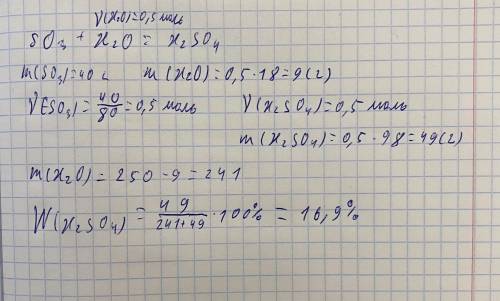 ν(H₂O)=0,5 моль
SO₃ + H₂O = H₂SO₄
m(SO₃)=40 г m(H₂O)=0,5·18=9(г)
ν(SO₃)= 40/80 =0,5 моль ν(H₂SO₄)=0,5 моль
m(H₂SO₄)=0,5·98=49(г)
m(H₂O)=250-9=241
W(H₂SO₄) = 49/241+49 ·100% = 16,9%